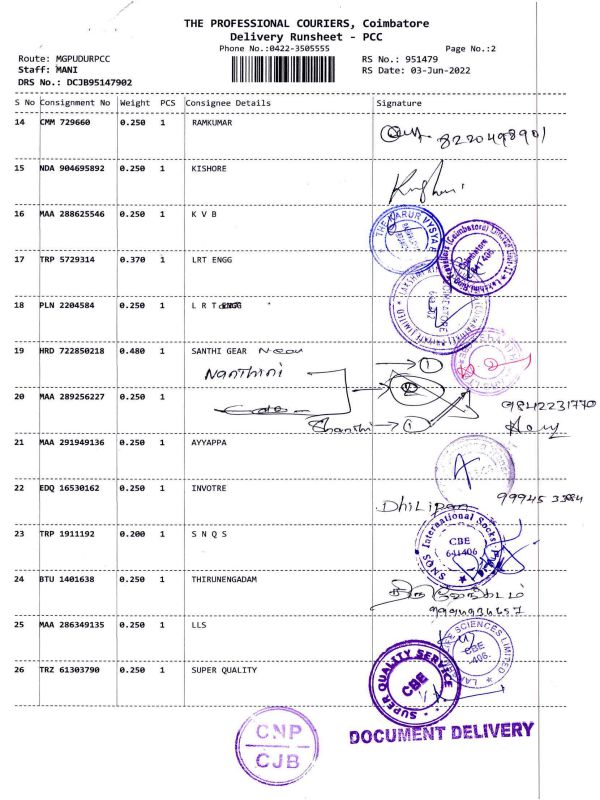 THE PROFESSIONAL COURIERS, Coimbatore
Delivery Runsheet - PCC
Phone No.:0422-3505555
Page No.:2
Route: MGPUDURPCC
RS No.: 951479
Staff: MANI
RS Date: 03-Jun-2022
DRS No.: DCJB95147902
S No Consignment No Weight PCS Consignee Details Signature
14 CMM 729660 0.250 1 RAMKUMAR
8220498901
15 NDA 904695892 0.250 1 KISHORE
16 MAA 288625546 0.250 1 K V B
THE KARUR VYSYA
17 TRP 5729314 0.370 1 LRT ENGG
18 PLN 2204584 0.250 1 L R T ENGG
19 HRD 722850218 0.480 1 SANTHI GEAR
Nanthini
1
20 MAA 289256227 0.250 1
2
9842231770
Shanthi 1
21 MAA 291949136 0.250 1 AYYAPPA
A
22 EDQ 16530162 0.250 1 INVOTRE
Dhilipan
99945 33984
23 TRP 1911192 0.200 1 S N Q S
SNQS International Socks
CBE
641406
24 BTU 1401638 0.250 1 THIRUNENGADAM
25 MAA 286349135 0.250 1 LLS
SCIENCES LIMITED
CBE
-406.
26 TRZ 61303790 0.250 1 SUPER QUALITY
SUPER QUALITY SERVICE
CBE
CNP
CJB
DOCUMENT DELIVERY